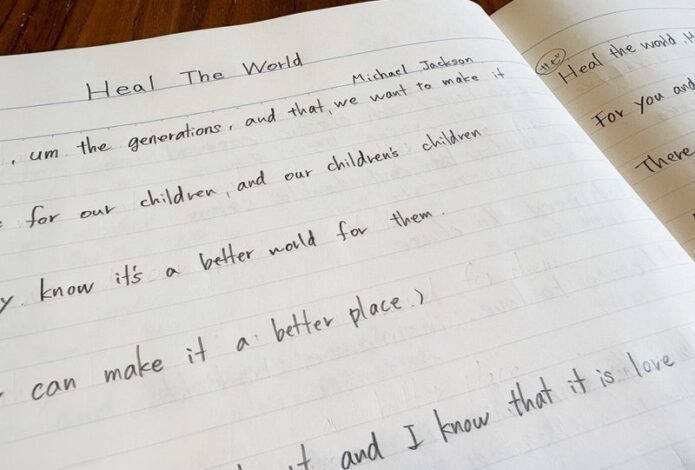 Heal The World
Michael Jackson
, um the generations, and that, we want to make it
for our children, and our children's children
know it's a better world for them.
can make it a better place.)
and I know that it is love
Heal the world
For you and
There